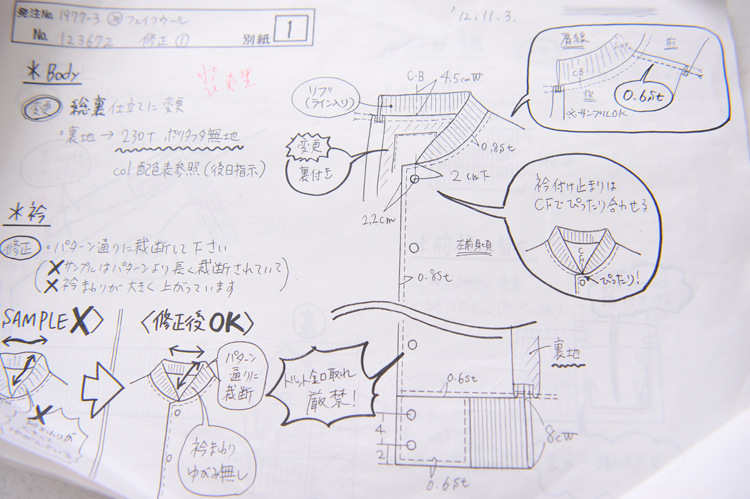 発注No. 1977-3 フェイクウール
No. 123672 修正① 別紙 1
'12.11.3.
*Body
変更 総裏仕立てに変更
・裏地 → 230T ポリタフタ無地
col 配色表参照(後日指示)
*衿
修正 ・パターン通りに裁断して下さい
(×サンプルはパターンより長く裁断されていて)
(×衿まわりが大きく上がっています)
SAMPLE X
〈修正後OK〉
パターン
通りに
裁断
衿まわり
ゆがみ無し
リブ
(ライン入り)
C.B
4.5cm W
変更
裏付き
0.8st
2cm下
2.2cm
左前身頃
0.8st
肩線
前
C.B
後
0.6st
※サンプルOK
衿付け止まりは
CFでぴったり合わせる
ぴったり!
裏地
ドット釦口取れ
厳禁!
0.6st
4
2
8cW
0.6st